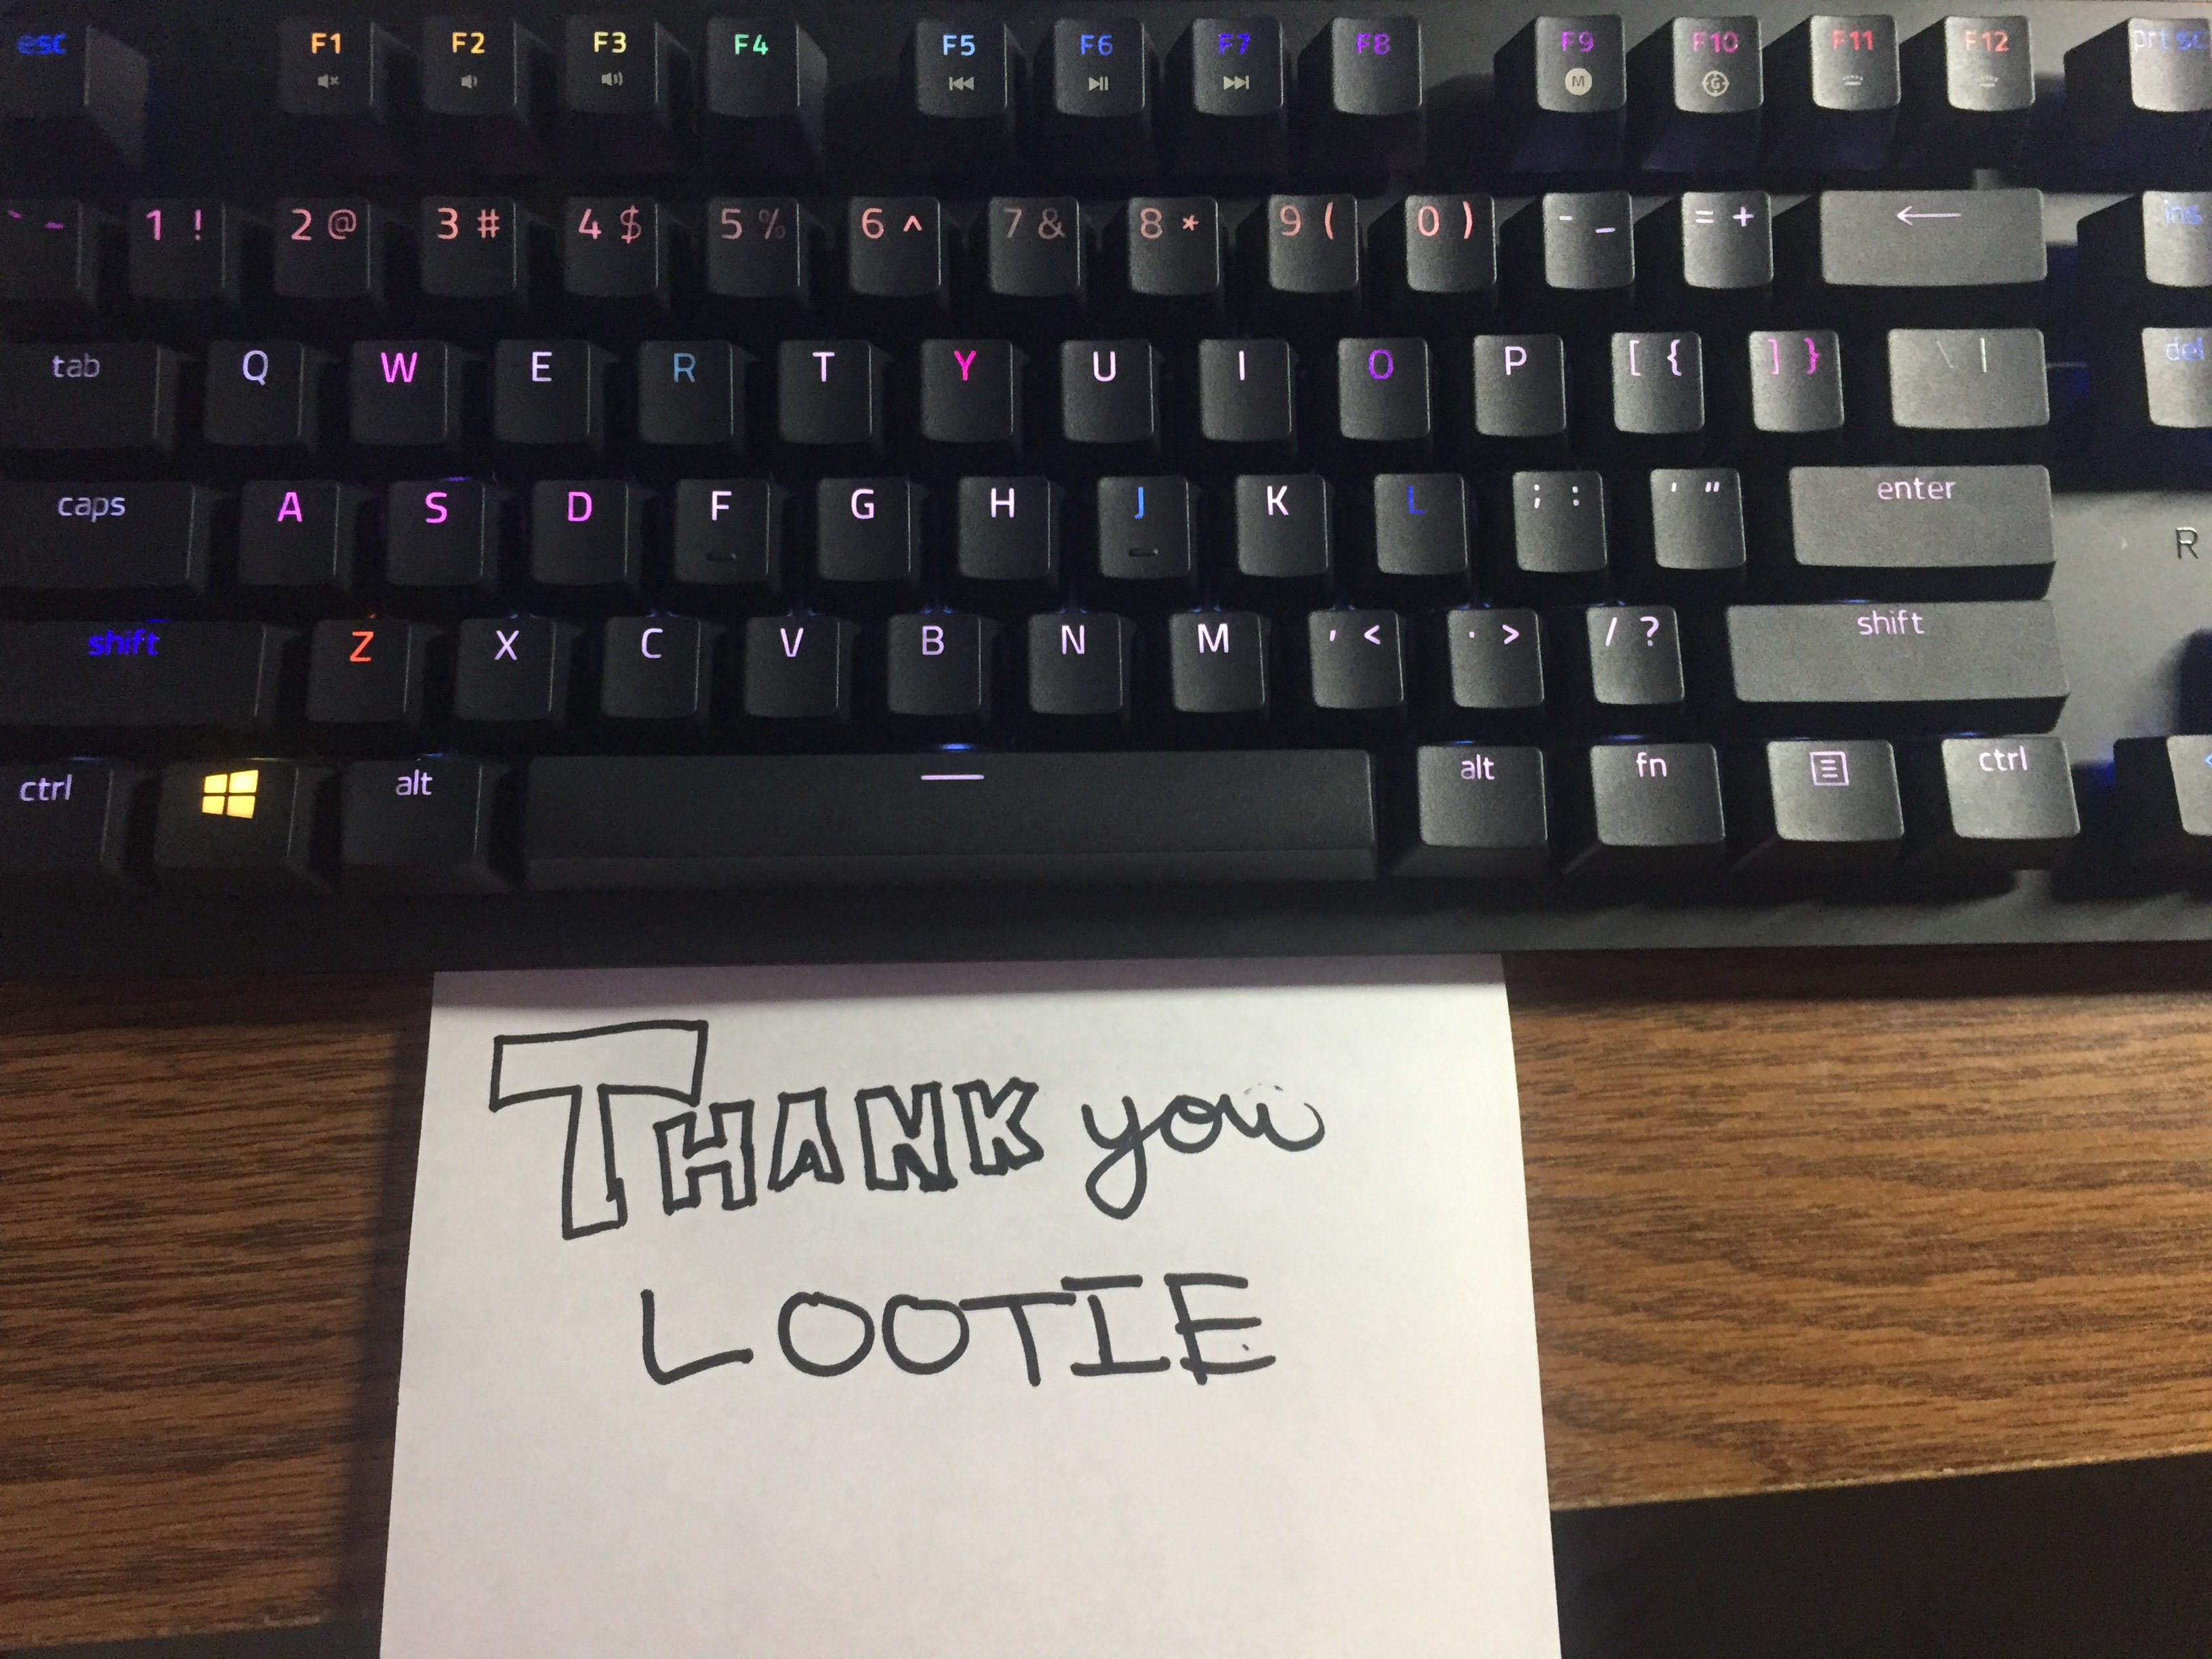 esc F1 F2 F3 F4 F5 F6 F7 F8 F9 F10 F11 F12 prt sc
M G
` ~ 1 ! 2 @ 3 # 4 $ 5 % 6 ^ 7 & 8 * 9 ( 0 ) - _ = + ← ins
tab Q W E R T Y U I O P [ { ] } \ | del
caps A S D F G H J K L ; : ' " enter
R
shift Z X C V B N M , < . > / ? shift
ctrl alt alt fn ctrl
THANK you
LOOTIE